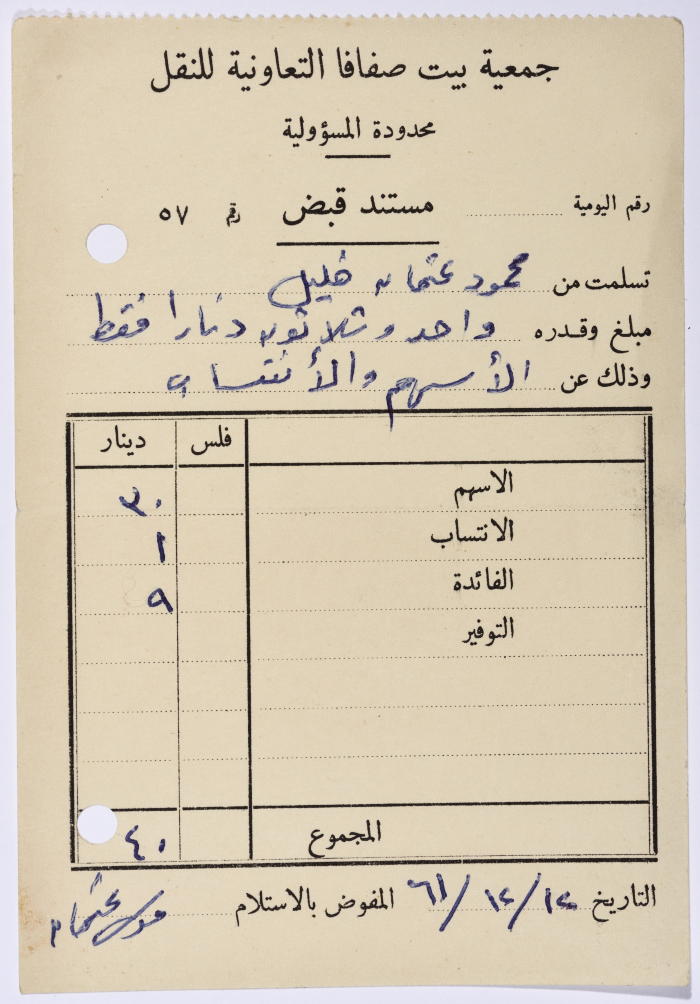 جمعية بيت صفافا التعاونية للنقل
محدودة المسؤولية
رقم اليومية مستند قبض رقم ٥٧
تسلمت من محمود عثمان خليل
مبلغ وقدره واحد وثلاثون دنارا فقط
وذلك عن الأسهم والأنتساب
فلس دينار
الاسهم ٣٠
الانتساب ١
الفائدة ٩
التوفير
المجموع ٤٠
التاريخ ١٢/١٢/٦١ المفوض بالاستلام عثمان